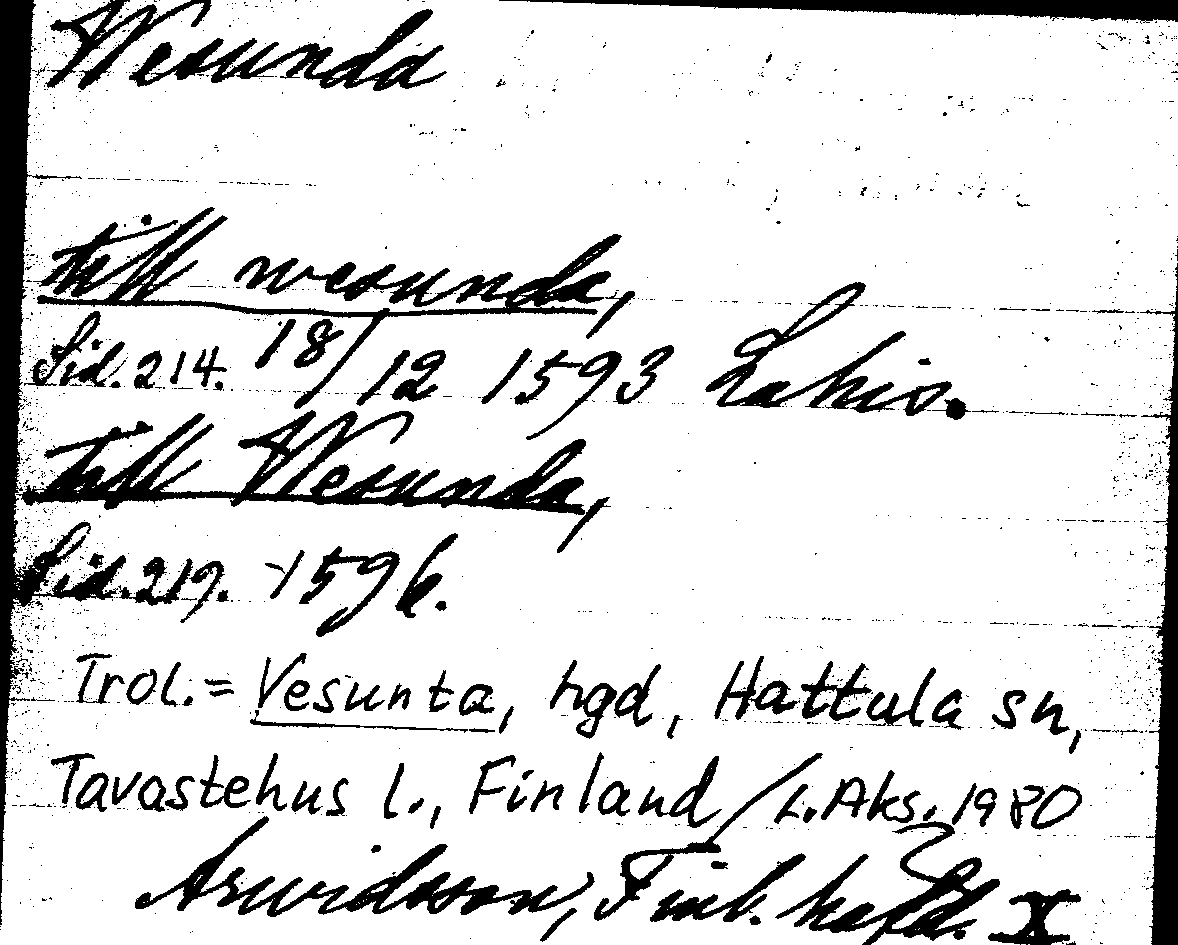 Wesunda
till wesunda,
Sid. 214. 18/12 1593 Lahis.
till Wesunda,
Sid. 219. 1596.
Trol. = Vesunta, hgd, Hattula sn,
Tavastehus l., Finland / L. Aks. 1980
Arwidsson, Finl. häfd. X